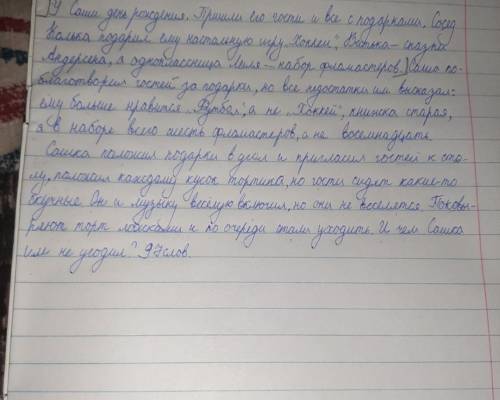 У Саши день рождения. Пришли его гости и все с подарками. Сосед
Колька подарил ему настольную игру "Хоккей", Витька – сказки
Андерсена, а одноклассница Лена – набор фломастеров. Саша по-
благотворил гостей за подарки, но все недостатки им высказал:
ему больше нравится "Футбол", а не "Хоккей", книжка старая,
а в наборе всего шесть фломастеров, а не восемнадцать.
Сашка положил подарки в угол и пригласил гостей к сто-
лу, положил каждому кусок тортика, но гости сидят какие-то
скучные. Он и музыку весёлую включил, но они не веселятся. Поковы-
ряют торт ложками и по очереди стали уходить. И чем Сашка
им не угодил? 97слов.